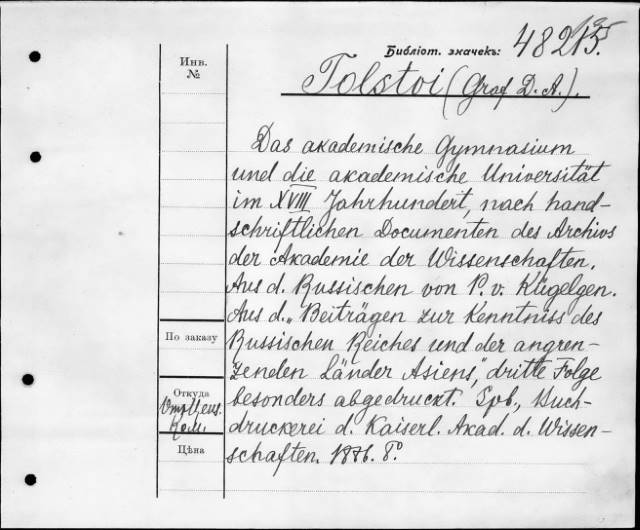 Библіот. значекъ: 482
Инв.
№
Tolstoi (Graf D. A.).
Das akademische Gymnasium
und die akademische Universität
im XVIII Jahrhundert, nach hand-
schriftlichen Documenten des Archivs
der Akademie der Wissenschaften.
Aus d. Russischen von P. v. Kügelgen.
Aus d. „Beiträgen zur Kenntniss des
Russischen Reiches und der angren-
zenden Länder Asiens,” dritte Folge
besonders abgedruckt. Spb., Buch-
druckerei d. Kaiserl. Akad. d. Wissen-
schaften. 1886. 8°
По заказу
Откуда
Цѣна